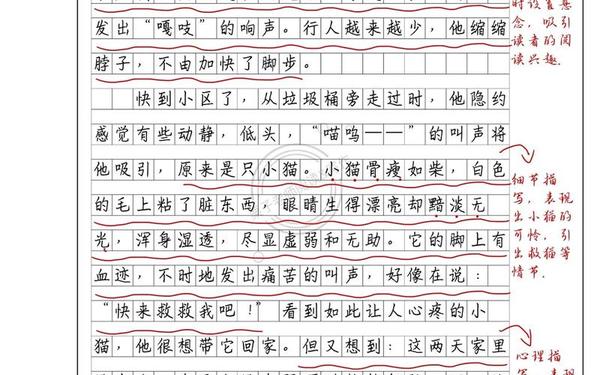 发出“嘎吱”的响声。行人越来越少，他缩缩
脖子，不由加快了脚步。
快到小区了，从垃圾桶旁走过时，他隐约
感觉有些动静，低头，“喵呜——”的叫声将
他吸引，原来是只小猫。小猫骨瘦如柴，白色
的毛上粘了脏东西，眼睛生得漂亮却黯淡无
光，浑身湿透，尽显虚弱和无助。它的脚上有
血迹，不时地发出痛苦的叫声，好像在说：
“快来救救我吧！”看到如此让人心疼的小
猫，他很想带它回家。但又想到：这两天家里
时设置悬
念，吸引
读者的阅
读兴趣.
细节描
写，表现
出小猫的
可怜，引
出救猫等
情节.
心理描
写，表现